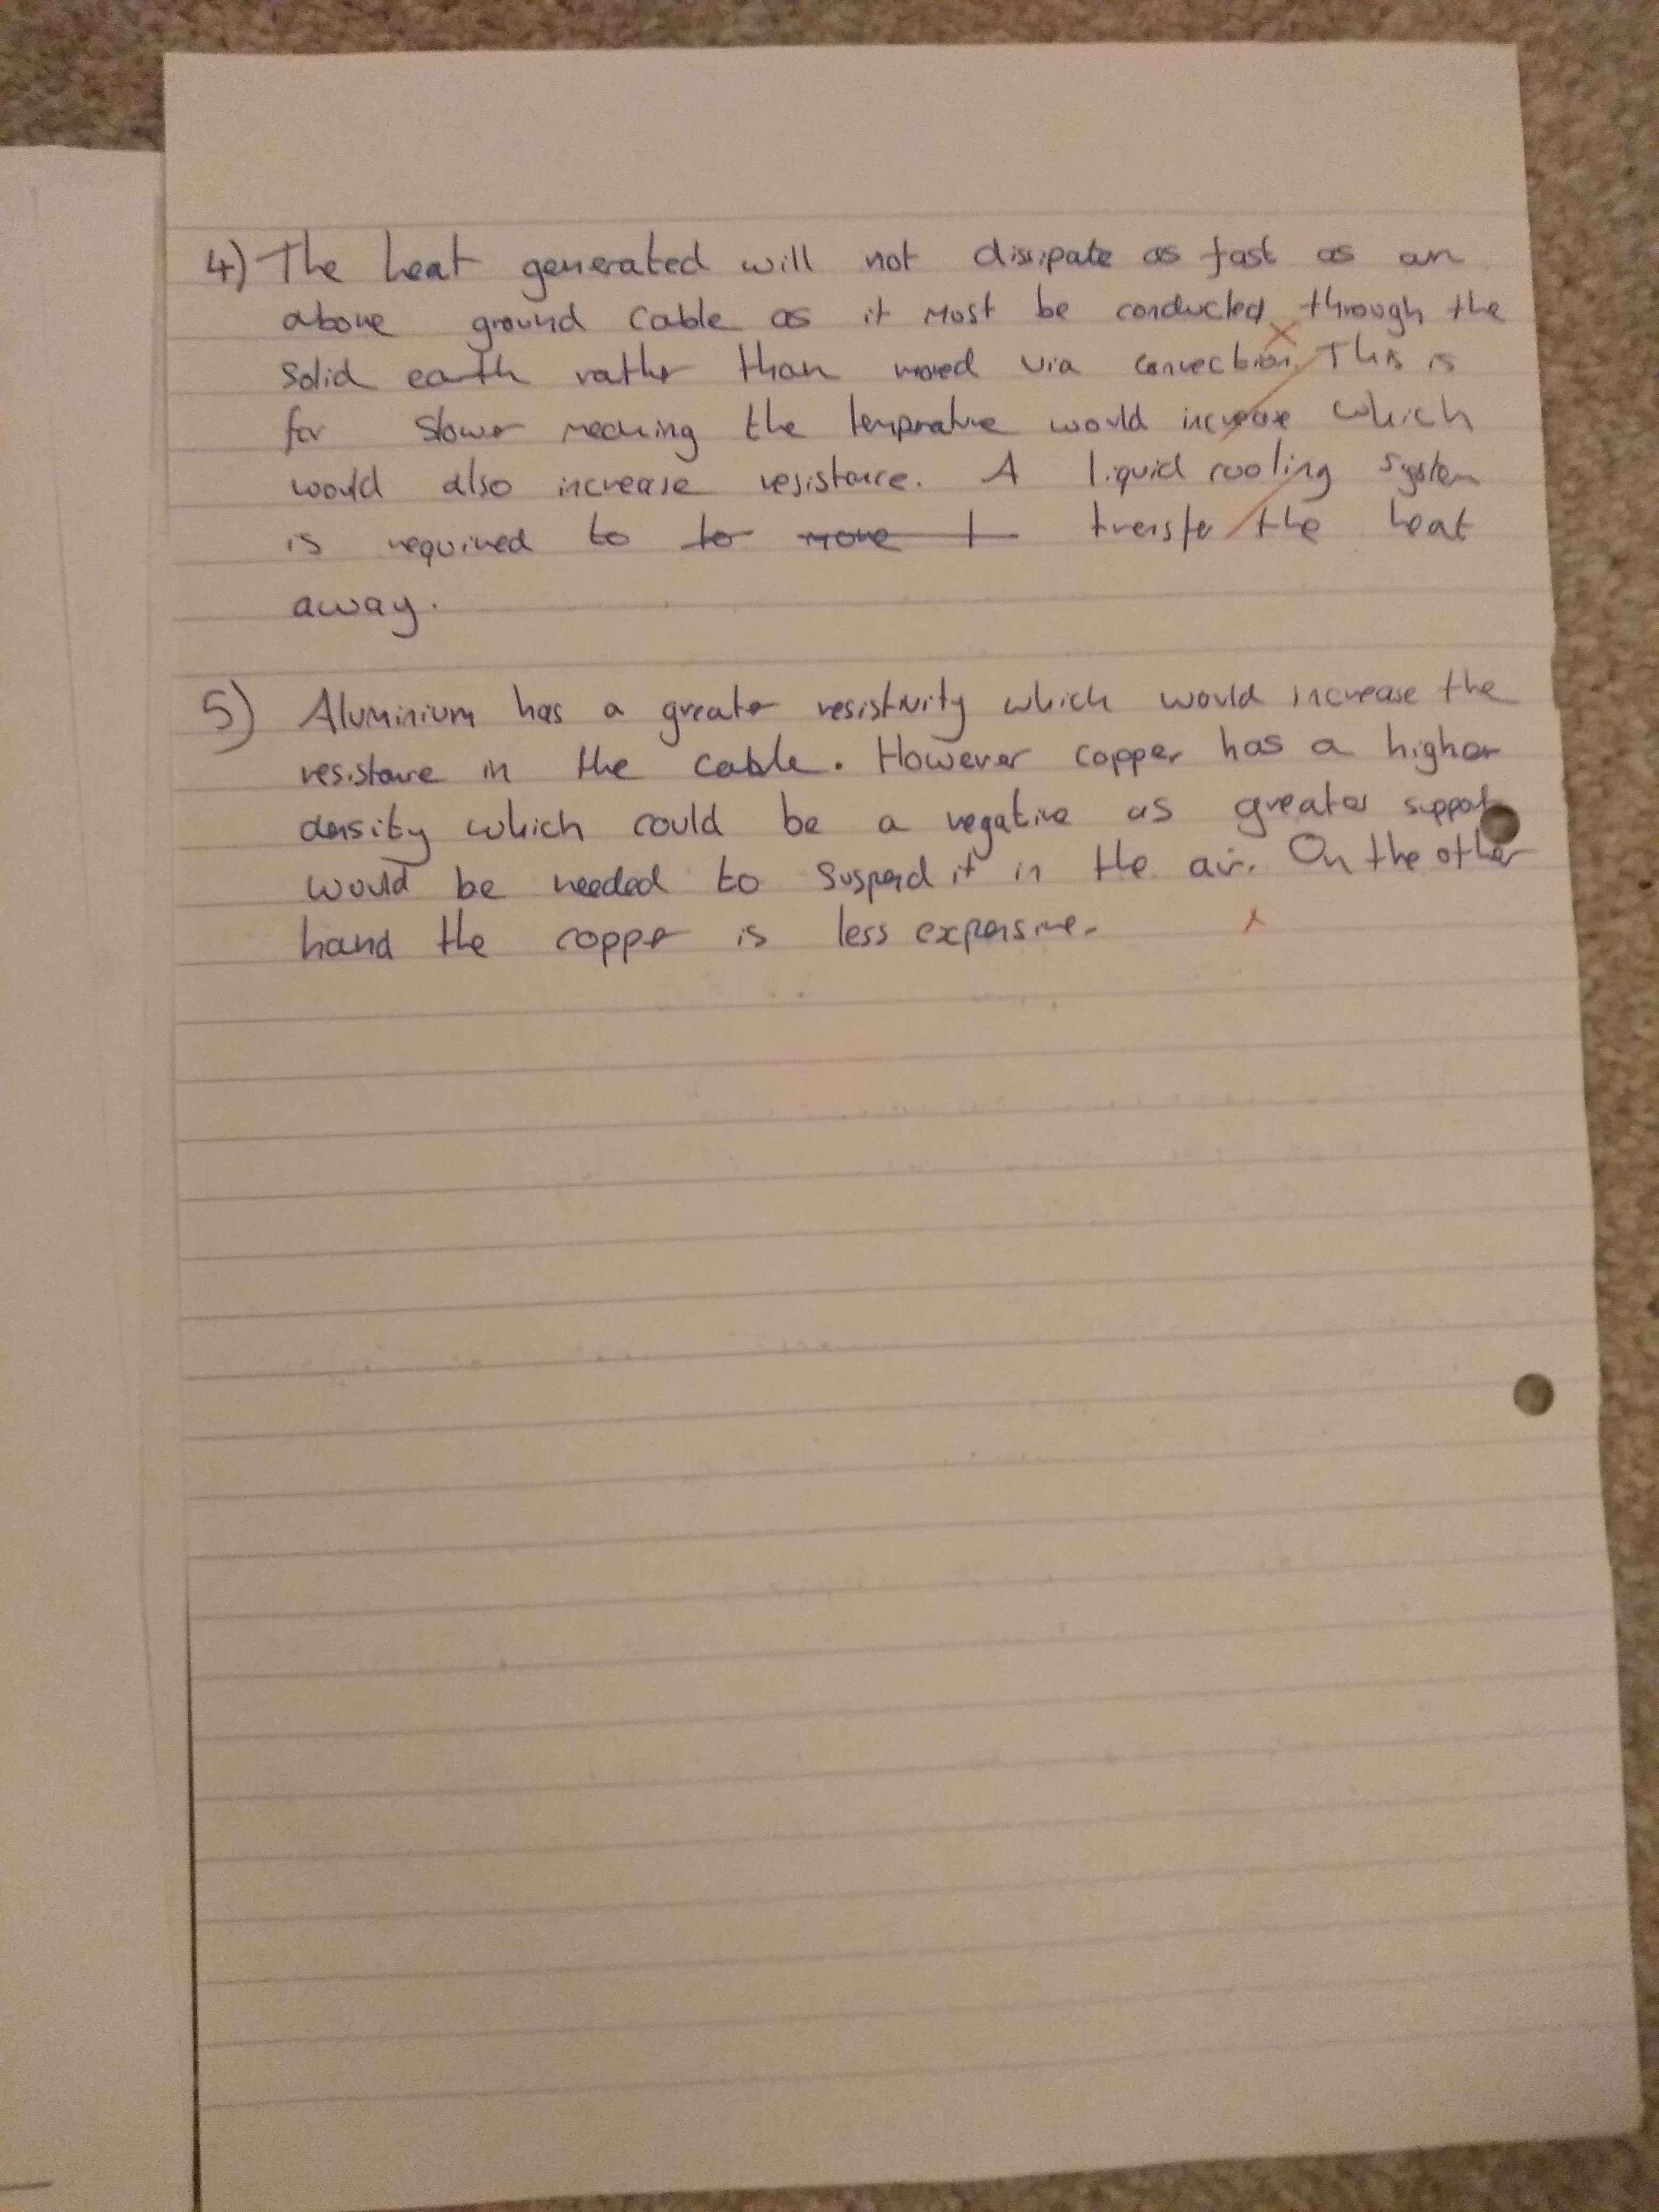 4) The heat generated will not dissipate as fast as an
above ground cable as it must be conducted through the
solid earth rather than moved via convection. This is
far slower meaning the temprature would increase which
would also increase resistance. A liquid cooling system
is required to to move t transfer the heat
away.
5) Aluminium has a greater resistivity which would increase the
resistance in the cable. However copper has a higher
density which could be a negative as greater support
would be needed to suspend it in the air. On the other
hand the copper is less expensive.